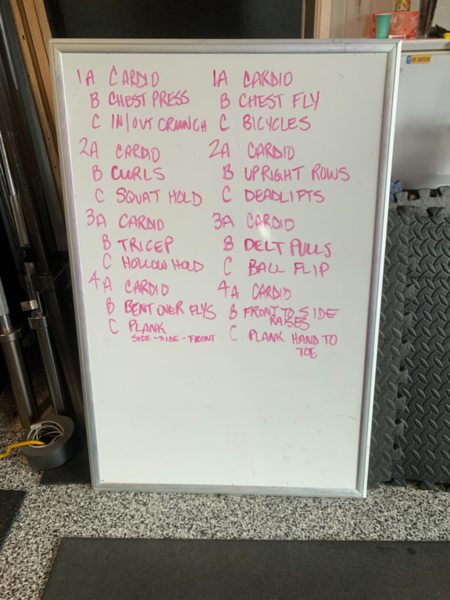 1A CARDIO
B CHEST PRESS
C IN/OUT CRUNCH
2A CARDIO
B CURLS
C SQUAT HOLD
3A CARDIO
B TRICEP
C HOLLOW HOLD
4A CARDIO
B BENT OVER FLYS
C PLANK
SIDE-SIDE-FRONT
1A CARDIO
B CHEST FLY
C BICYCLES
2A CARDIO
B UPRIGHT ROWS
C DEADLIFTS
3A CARDIO
B DELT PULLS
C BALL FLIP
4A CARDIO
B FRONT TO SIDE
RAISES
C PLANK HAND TO
TOE